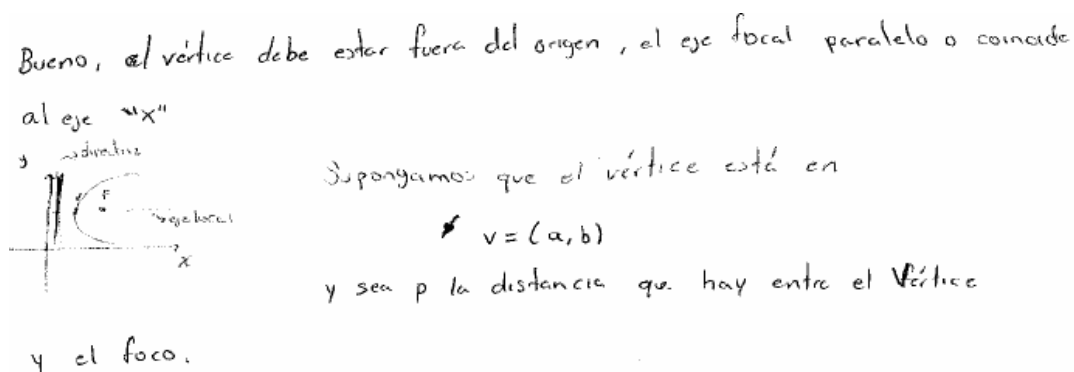 Bueno, el vértice debe estar fuera del origen, el eje focal paralelo o coincide
al eje "x"
y
directriz
F
eje focal
x
Supongamos que el vértice está en
v = (a, b)
y sea p la distancia que hay entre el Vértice
y el foco.